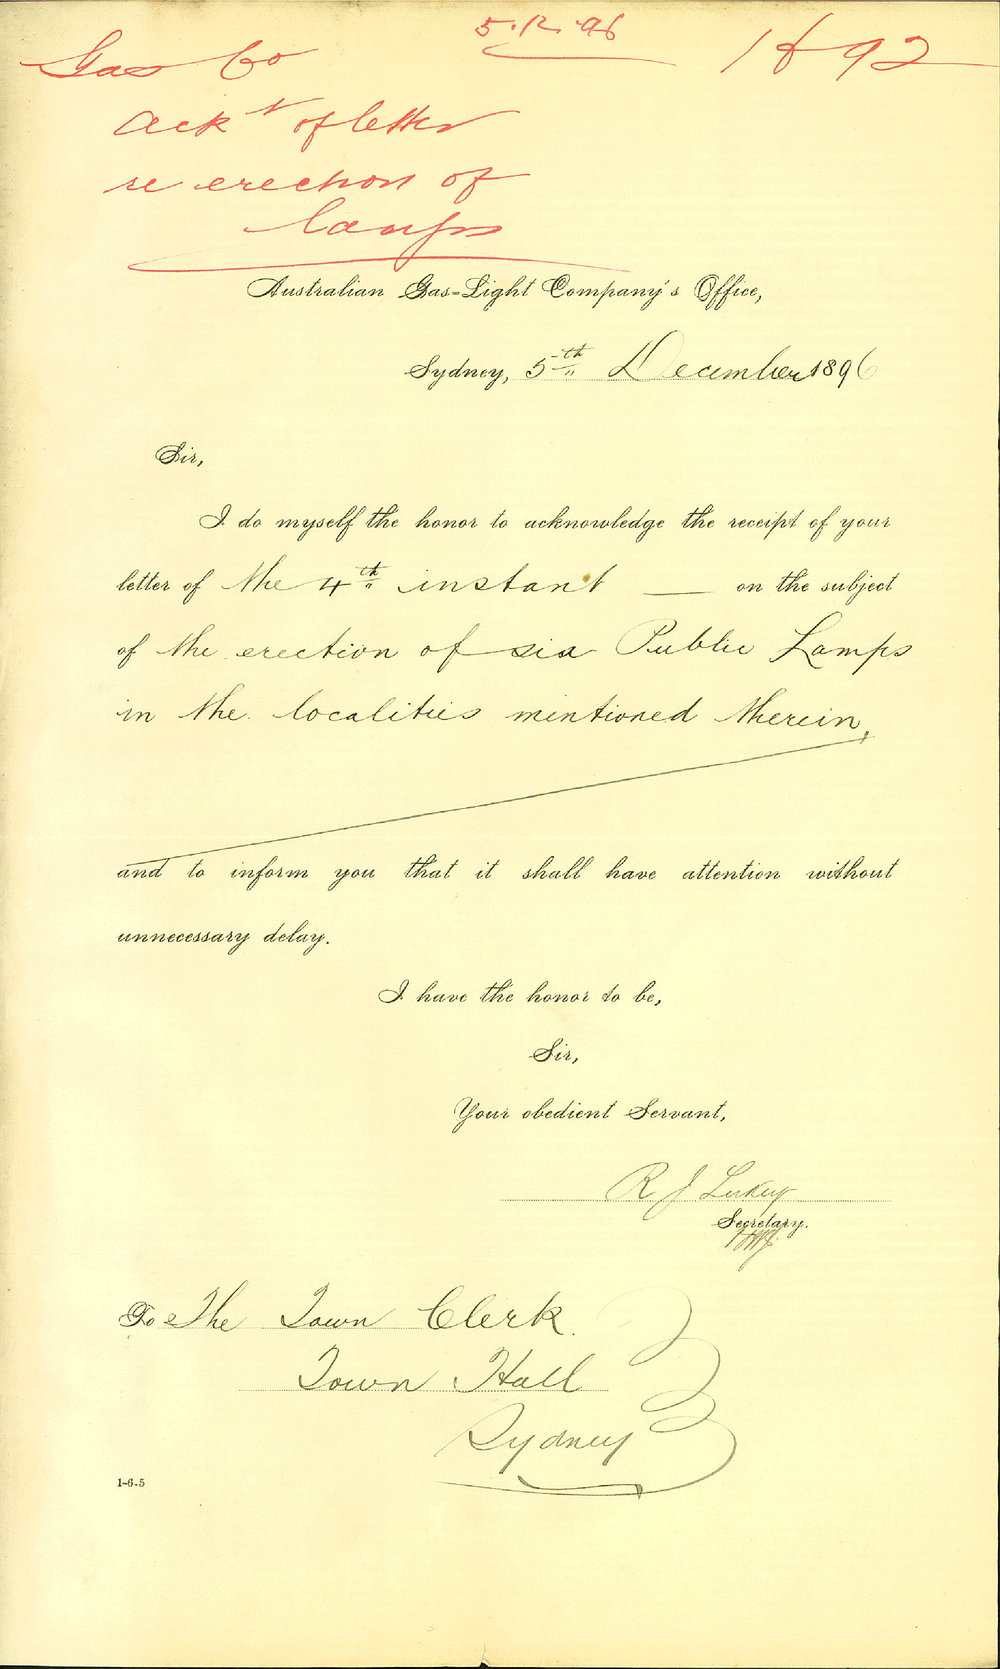 5.12.96
Gas Co
Ackt of letter
re erection of
lamps
Australian Gas-Light Company's Office,
Sydney, 5th December 1896
Sir,
I do myself the honor to acknowledge the receipt of your
letter of the 4th instant — on the subject
of the erection of six Public Lamps
in the localities mentioned therein,
and to inform you that it shall have attention without
unnecessary delay.
I have the honor to be,
Sir,
Your obedient Servant,
R J Lukey
Secretary.
To The Town Clerk
Town Hall
Sydney
1-6-5